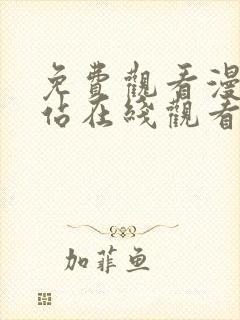 免費觀看漫
佔在綫觀看
加菲鱼